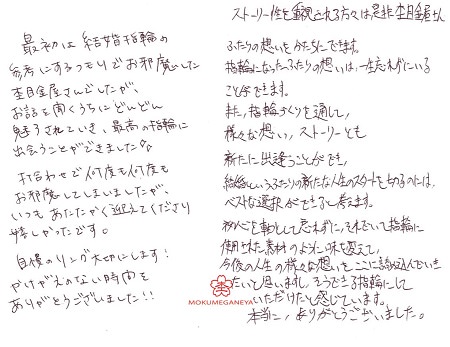 最初は結婚指輪の
参考にするつもりでお邪魔した
杢目金屋さんでしたが、
お話を聞くうちにどんどん
魅了されていき、最高の指輪に
出会うことができました
打合わせで何度も何度も
お邪魔してしまいましたが、
いつもあたたかく迎えてくださり
嬉しかったです。
自慢のリング大切にします!
かけがえのない時間を
ありがとうございました!!
ストーリー性を重視される方々は是非杢目金屋さん
ふたりの想いをかたちにできます。
指輪になったふたりの想いは、一生忘れずにいる
ことができます。
また、指輪づくりを通して、
様々な想い、ストーリーとも
新たに出逢うことができ、
結婚というふたりの新たな人生のスタートをきるのには、
ベストな選択ができると考えます。
初心を軸として忘れずに、それでいて指輪に
使用された素材のように味を変えて、
今後の人生の様々な想いをここに詰め込んでいき
たいと思いますし、そうできる指輪にして
いただけたと感じています。
本当に、ありがとうございました。
MOKUMEGANEYA